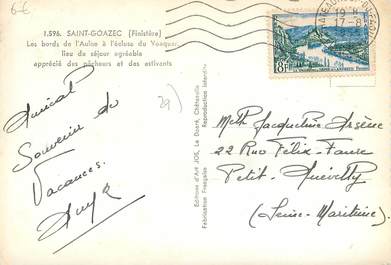 6€
1.596. SAINT-GOAZEC (Finistère)
Les bords de l'Aulne à l'écluse du Voaquer
lieu du séjour agréable
apprécié des pêcheurs et des estivants
19 H
17-8
8F
Amical
Souvenir de
Vacances.
29)
Editions d'Art JOS, Le Doaré, Châteaulin
Fabrication Française
Reproduction interdite
Melle Jacqueline Arsène
22 Rue Félix-Faure
Petit-Quevilly
(Seine-Maritime)